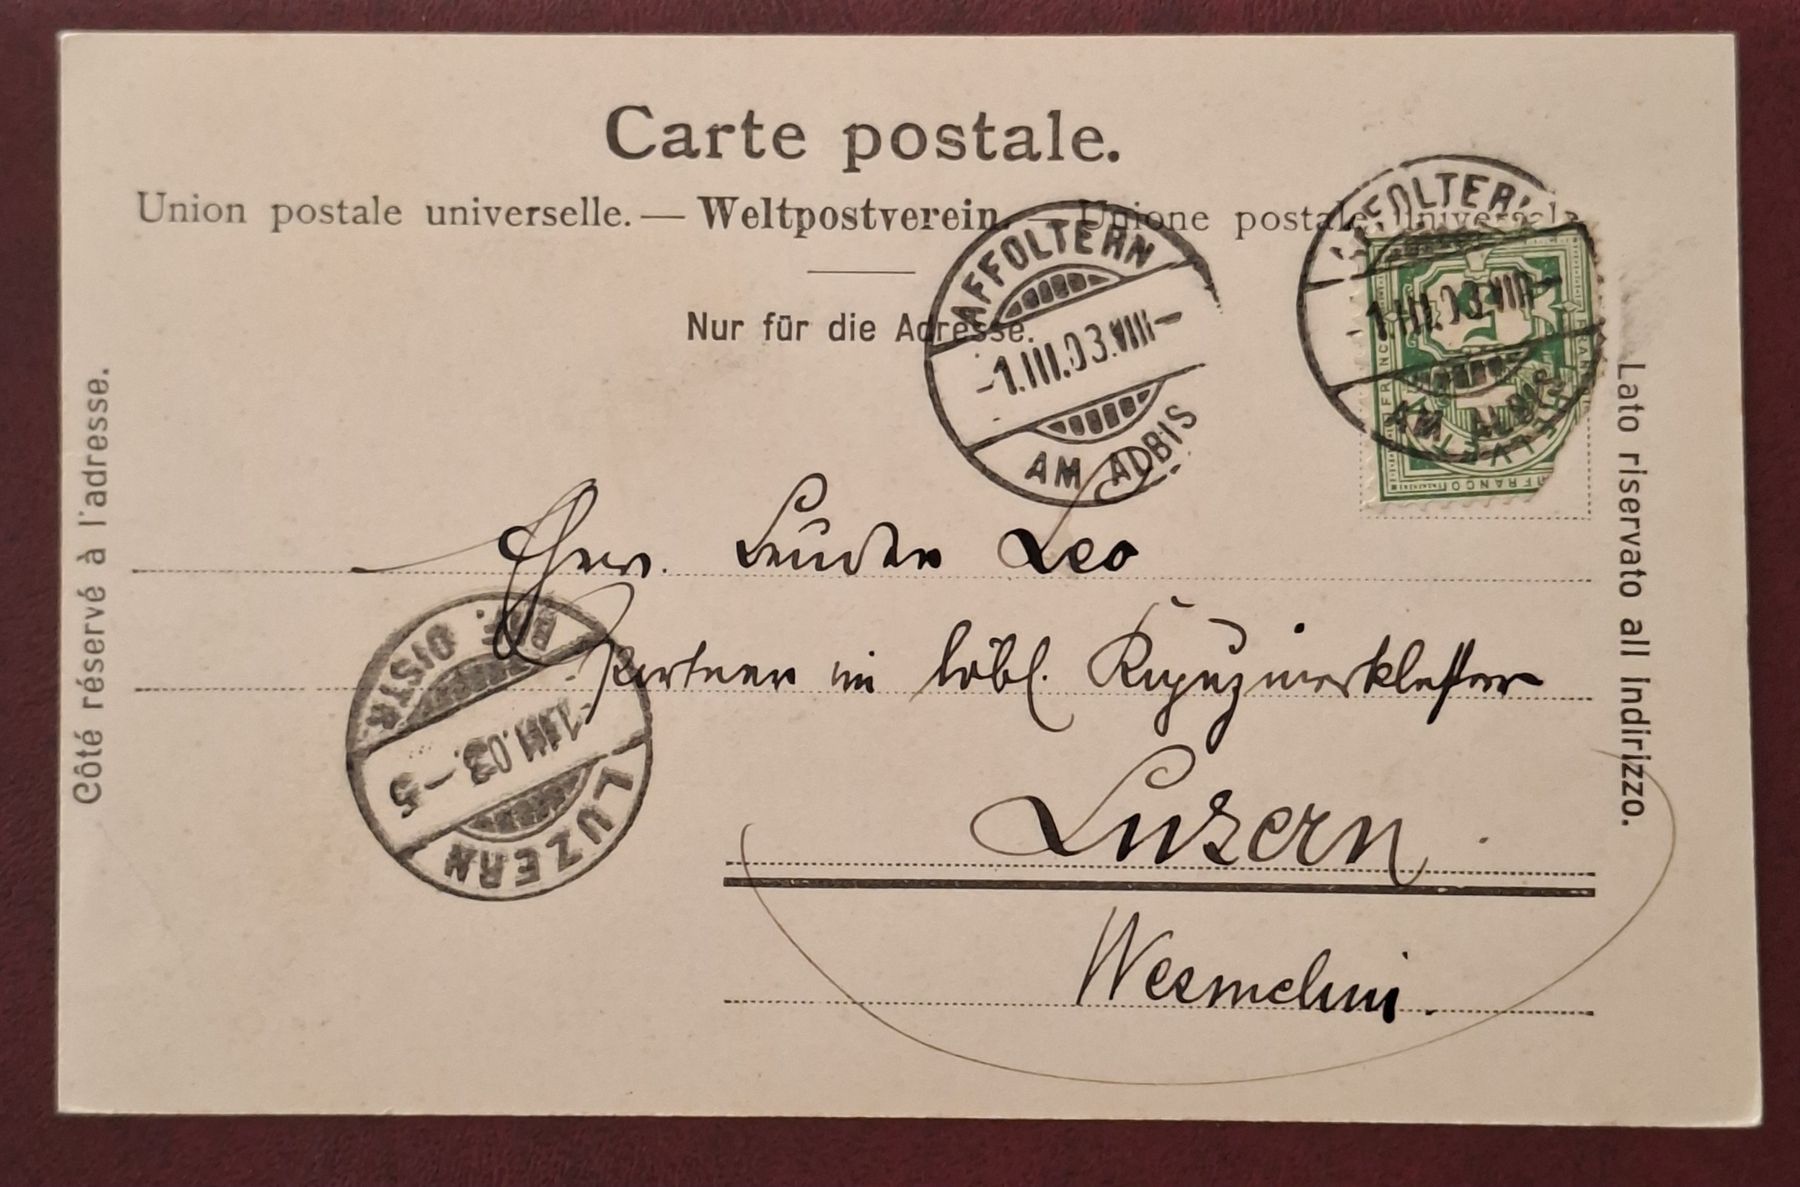 Carte postale.
Union postale universelle. — Weltpostverein. — Unione postale universale
Nur für die Adresse.
AFFOLTERN
-1.III.03.VIII-
AM ALBIS
AFFOLTERN
-1.III.03.VIII-
AM ALBIS
FRANCO
HELVETIA
Côté réservé à l'adresse.
Lato riservato all indirizzo.
Ehrw. Bruder Leo
Portner im löbl. Kapuzinerkloster
Luzern.
Wesmelini.
LUZERN
-1.III.03.-5
BRF. DISTR.